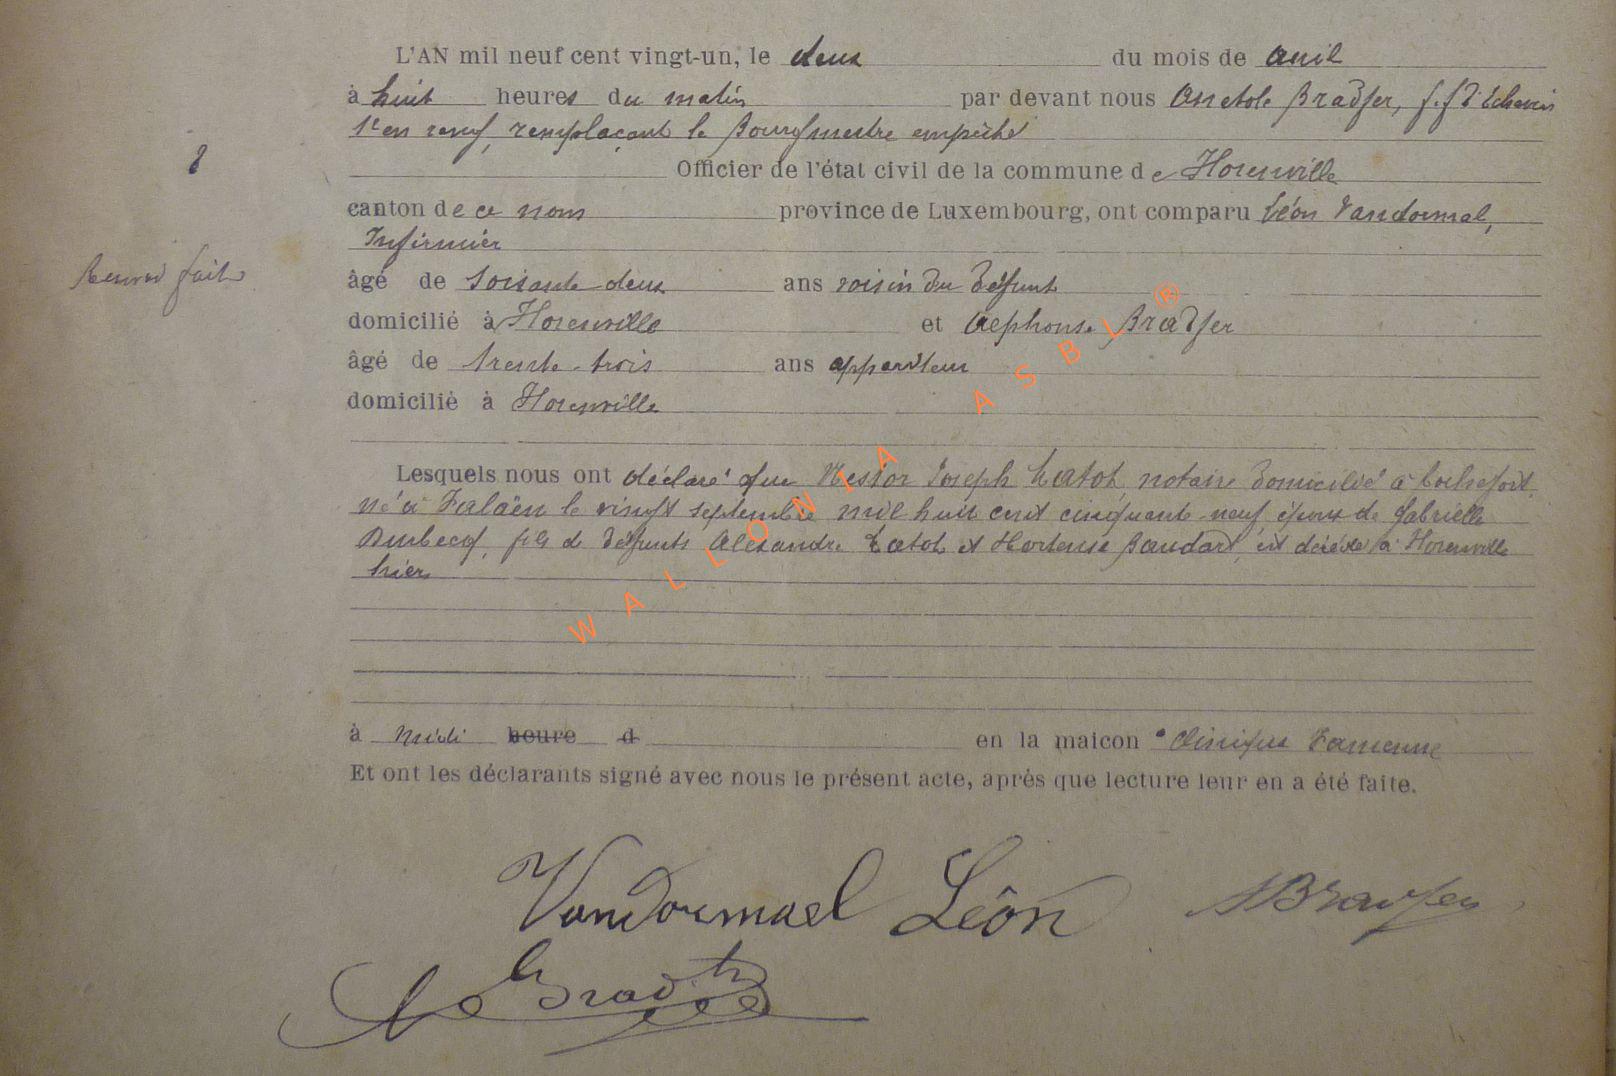 L'AN mil neuf cent vingt-un, le deux du mois de avril
à huit heures du matin par devant nous Anatole Bradfer, f.f. d'Echevin
remplaçant le Bourgmestre empêché
8
Officier de l'état civil de la commune de Florenville
canton de ce nom province de Luxembourg, ont comparu Léon Vandormael,
Infirmier
fait
âgé de soixante-deux ans voisin du défunt
domicilié à Florenville et Alphonse Bradfer
âgé de trente-trois ans appariteur
domicilié à Florenville
Lesquels nous ont déclaré que Nestor Joseph Latot, notaire domicilié à Rochefort,
né à Falaën le vingt septembre mil huit cent cinquante-neuf, époux de Gabrielle
fils de défunts Alexandre Latot et Hortense Baudart, est décédé à Florenville
hier
à midi heure d en la maicon clinique Famenne
Et ont les déclarants signé avec nous le présent acte, après que lecture leur en a été faite.
Vandormael Léon ABradfer
WALLONIA ASBL ®